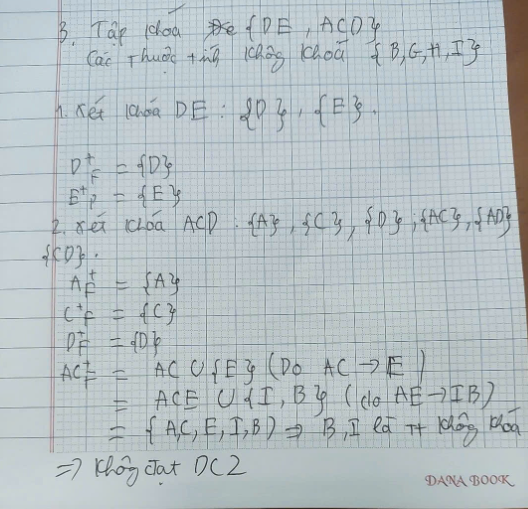 3. Tập khoá {DE, ACD}
Các thuộc tính không khoá {B,G,H,I}
1. Xét khoá DE: {D}, {E}.
D⁺F = {D}
E⁺F = {E}
2. Xét khoá ACD: {A}, {C}, {D}, {AC}, {AD}
{CD}.
A⁺F = {A}
C⁺F = {C}
D⁺F = {D}
AC⁺F = AC ∪ {E} (Do AC → E)
= ACE ∪ {I, B} (do AE → IB)
= {A,C,E,I,B) ⇒ B,I là TT không khoá
⇒ Không đạt DC2
DANA BOOK